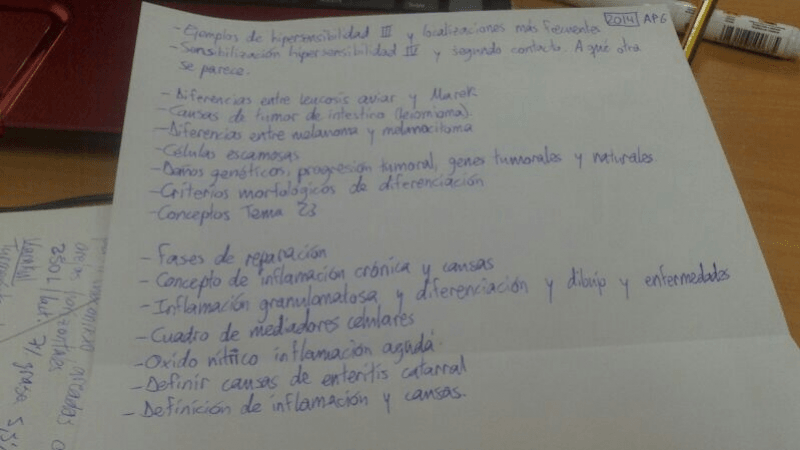 2014 APG
- Ejemplos de hipersensibilidad III y localizaciones más frecuentes
- Sensibilización hipersensibilidad IV y segundo contacto. A qué otra
se parece.
- Diferencias entre leucosis aviar y Marek
- Causas de tumor de intestino (leiomioma).
- Diferencias entre melanoma y melanocitoma
- Células escamosas
- Daños genéticos, progresión tumoral, genes tumorales y naturales.
- Criterios morfológicos de diferenciación
- Conceptos Tema 23
- Fases de reparación
- Concepto de inflamación crónica y causas
- Inflamación granulomatosa y diferenciación y dibujo y enfermedades
- Cuadro de mediadores celulares
- Oxido nítrico inflamación aguda.
- Definir causas de enteritis catarral
- Definición de inflamación y causas.